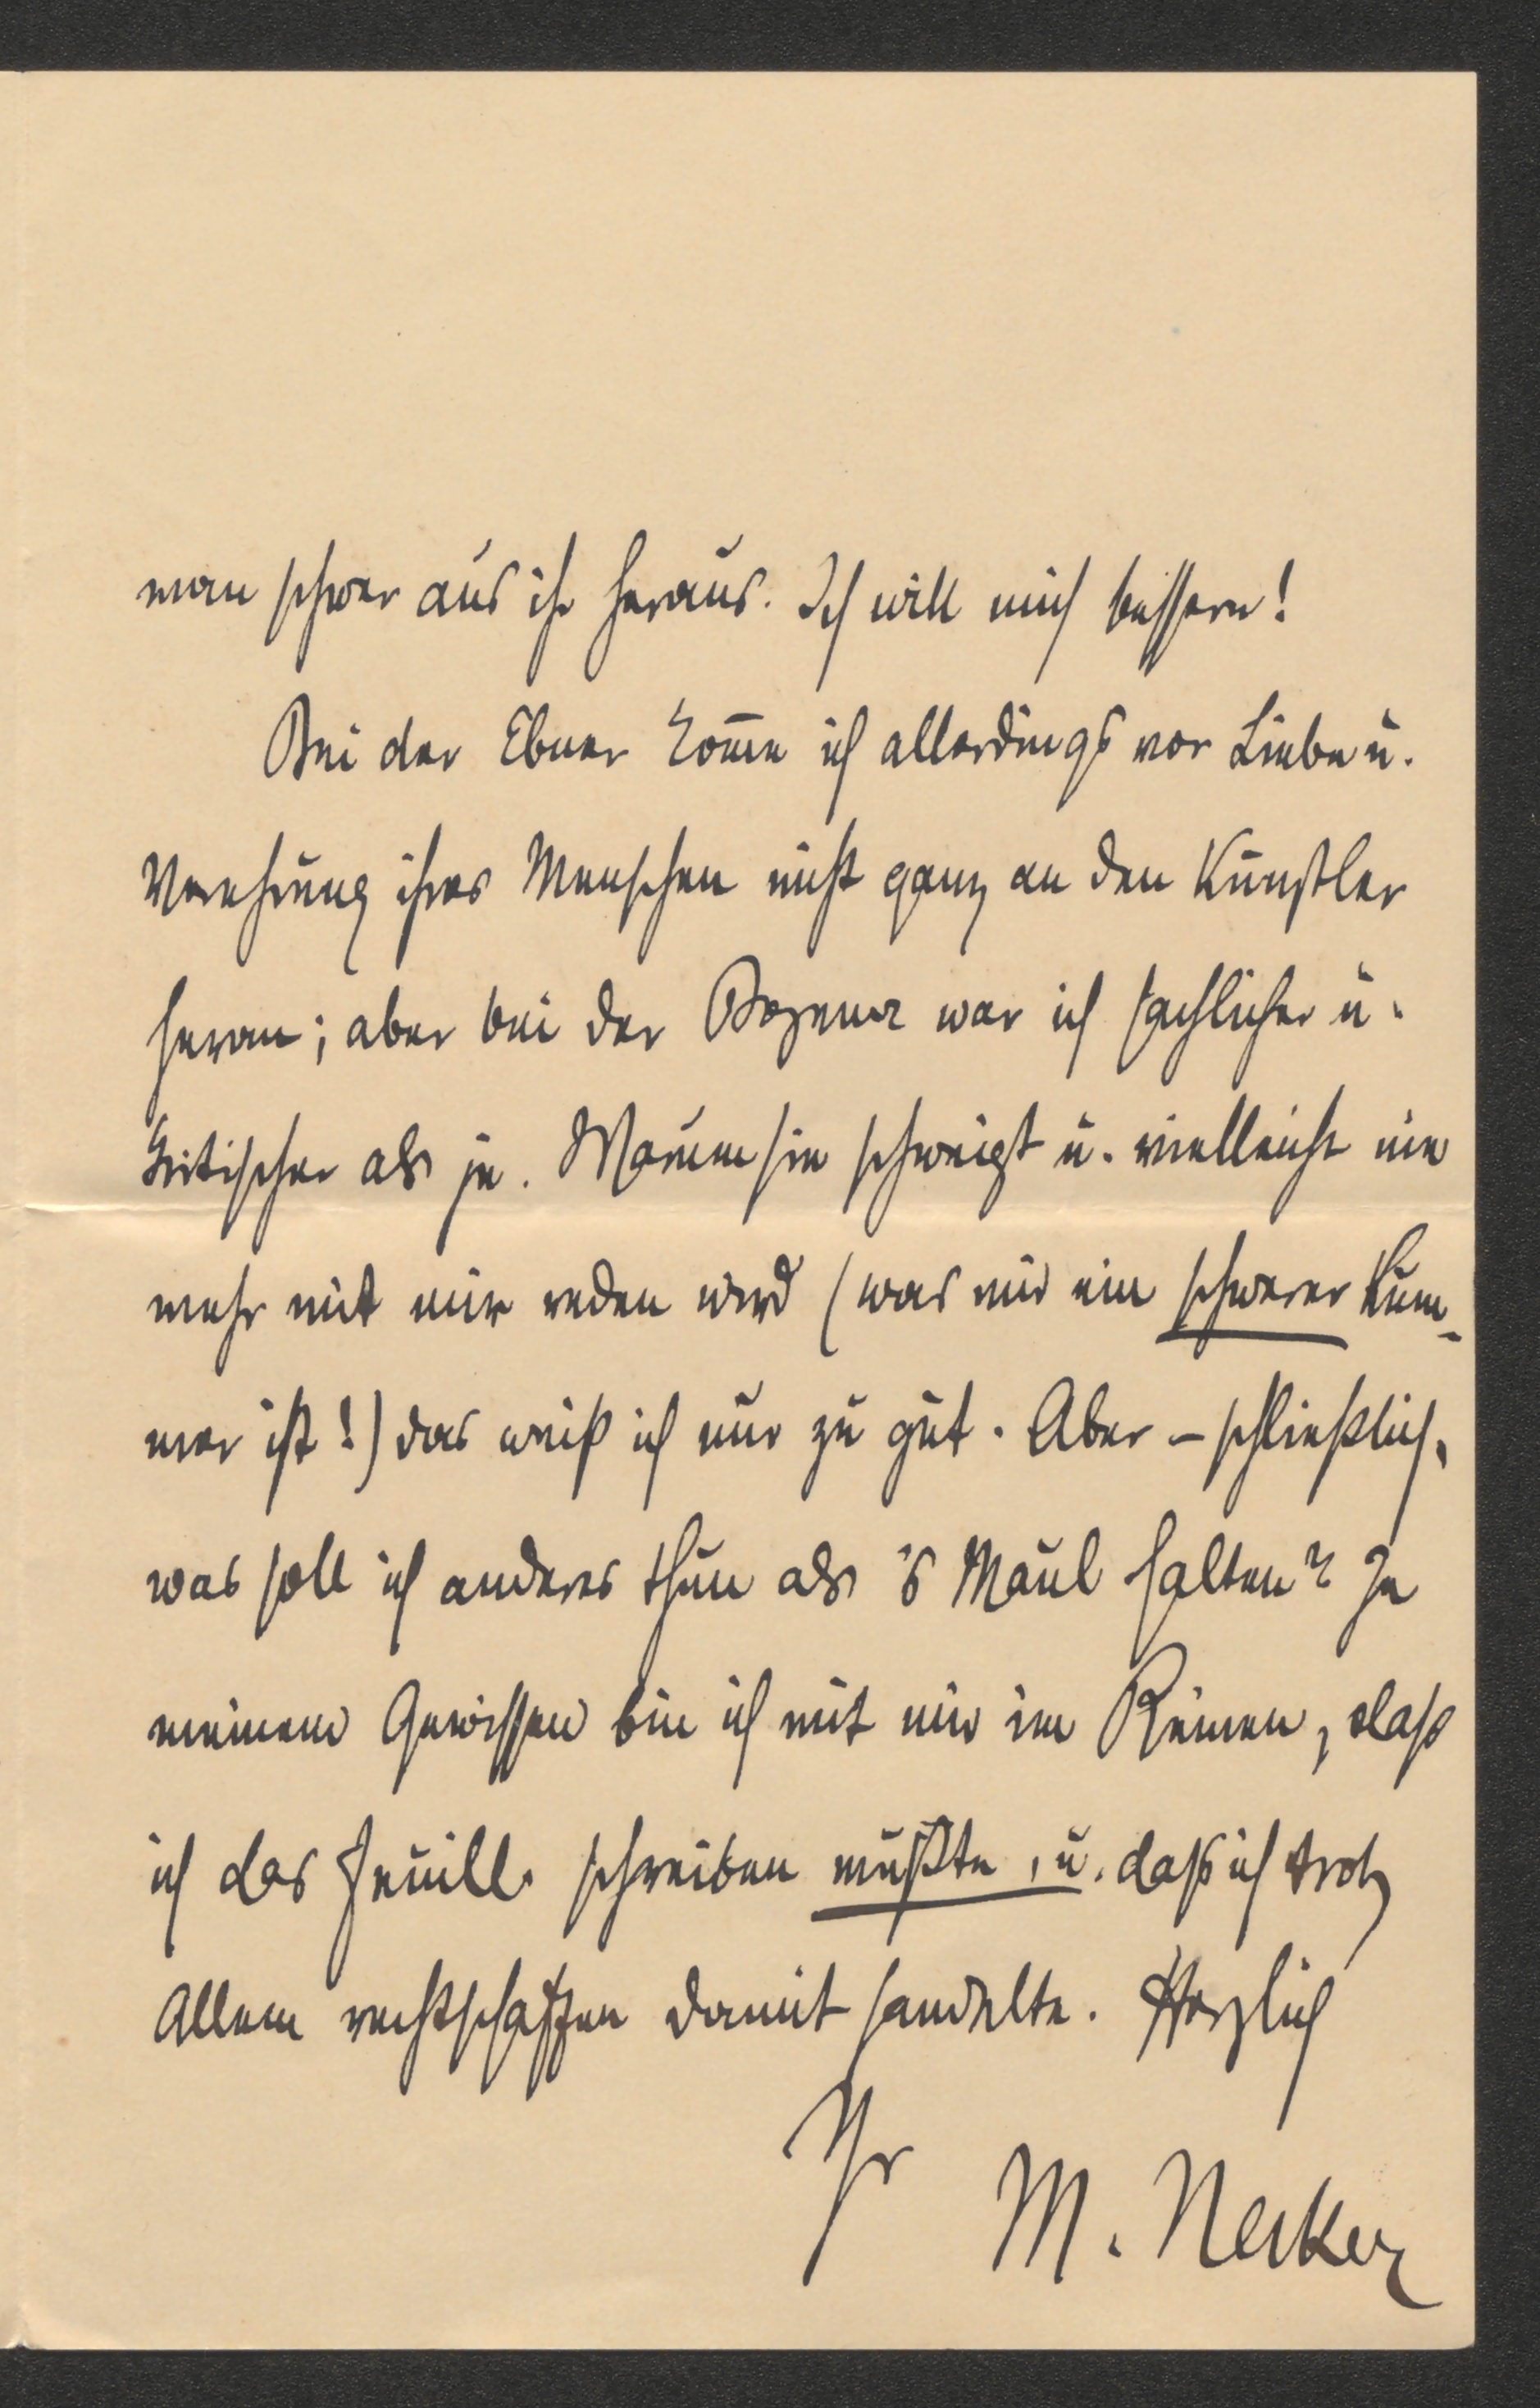 man schwer aus ihr heraus. Ich will mich bessern!
Bei der Ebner kom̅e ich allerdings vor Liebe u.
Verehrung ihres Menschen nicht ganz an den Künstler
heran; aber bei der Bozena war ich sachlicher u.
kritischer als je. Warum sie schweigt u. vielleicht nie
mehr mit mir reden wird (was mir ein schwerer Kum-
mer ist!) das weiß ich nur zu gut. Aber – schließlich,
was soll ich anderes thun als 's Maul halten? In
meinem Gewissen bin ich mit mir im Reinen, daß
ich das Feuill. schreiben mußte, u. daß ich trotz
Allem rechtschaffen damit handelte. Herzlich
Ihr
M. Necker